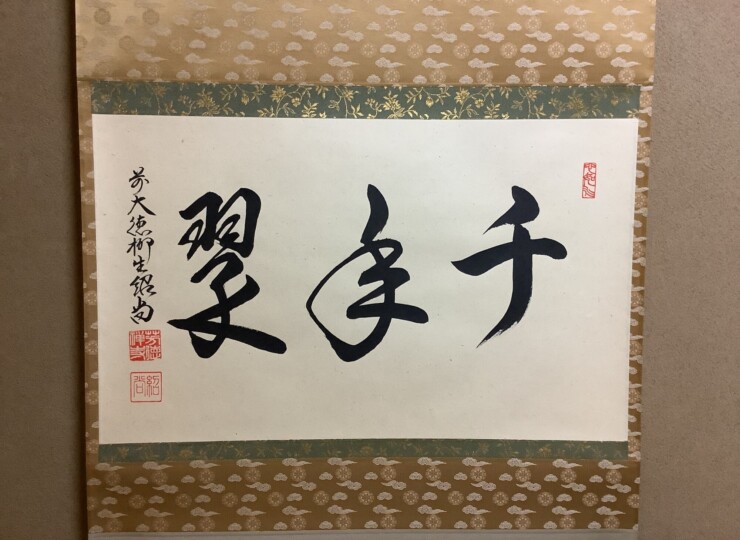 千年翠
前大徳柳生紹尚